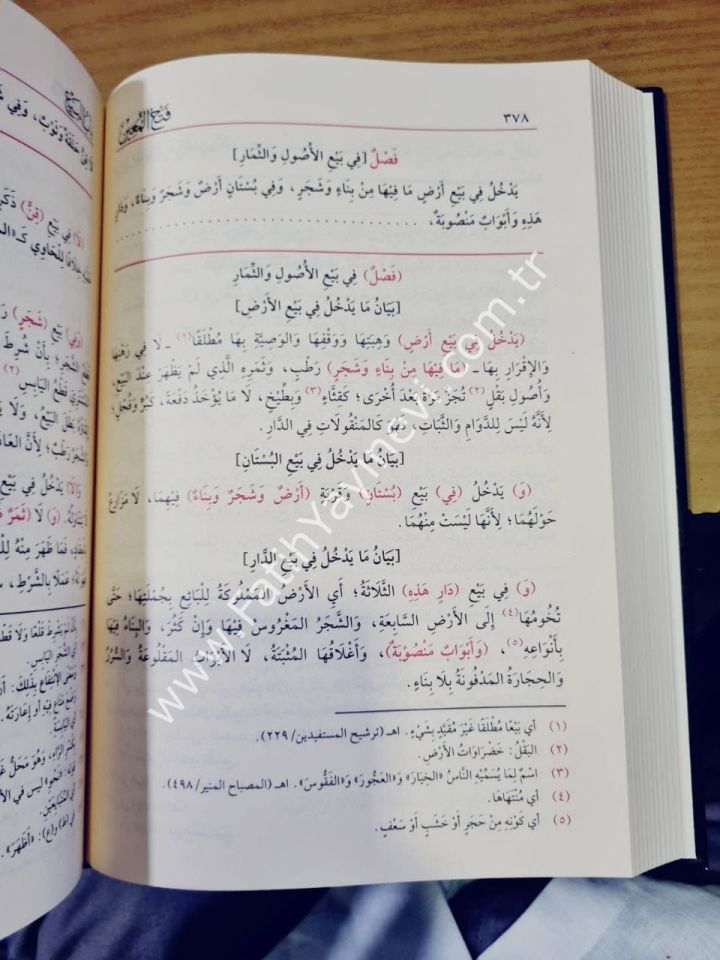 ٣٧٨
فَتْحُ الْمُعِين
فَصْلٌ [فِي بَيْعِ الْأُصُولِ وَالثِّمَارِ]
يَدْخُلُ فِي بَيْعِ أَرْضٍ مَا فِيهَا مِنْ بِنَاءٍ وَشَجَرٍ، وَفِي بُسْتَانٍ أَرْضٌ وَشَجَرٌ وَبِنَاءٌ، وَدَارٍ
هَذِهِ وَأَبْوَابٌ مَنْصُوبَةٌ، ........................................
(فَصْلٌ) فِي بَيْعِ الْأُصُولِ وَالثِّمَارِ
[بَيَانُ مَا يَدْخُلُ فِي بَيْعِ الْأَرْضِ]
(يَدْخُلُ فِي بَيْعِ أَرْضٍ) وَهِبَتِهَا وَوَقْفِهَا وَالْوَصِيَّةِ بِهَا مُطْلَقًا (١) ـ لَا فِي رَهْنِهَا
وَالْإِقْرَارِ بِهَا ـ (مَا فِيهَا مِنْ بِنَاءٍ وَشَجَرٍ) رَطْبٍ، وَثَمَرِهِ الَّذِي لَمْ يَظْهَرْ عِنْدَ الْبَيْعِ،
وَأُصُولِ بَقْلٍ (٢) تُجَزُّ مَرَّةً بَعْدَ أُخْرَى؛ كَقِثَّاءٍ (٣) وَبِطِّيخٍ، لَا مَا يُؤْخَذُ دَفْعَةً، كَبُرٍّ وَفُجْلٍ؛
لِأَنَّهُ لَيْسَ لِلدَّوَامِ وَالثَّبَاتِ، فَهُوَ كَالْمَنْقُولَاتِ فِي الدَّارِ.
[بَيَانُ مَا يَدْخُلُ فِي بَيْعِ الْبُسْتَانِ]
(وَ) يَدْخُلُ (فِي) بَيْعِ (بُسْتَانٍ) وَقَرْيَةٍ (أَرْضٌ وَشَجَرٌ وَبِنَاءٌ) فِيهِمَا، لَا مَزَارِعُ
حَوْلَهُمَا؛ لِأَنَّهَا لَيْسَتْ مِنْهُمَا.
[بَيَانُ مَا يَدْخُلُ فِي بَيْعِ الدَّارِ]
(وَ) فِي بَيْعِ (دَارٍ هَذِهِ) الثَّلَاثَةُ؛ أَيِ الْأَرْضُ الْمَمْلُوكَةُ لِلْبَائِعِ بِجُمْلَتِهَا؛ حَتَّى
تُخُومُهَا (٤) إِلَى الْأَرْضِ السَّابِعَةِ، وَالشَّجَرُ الْمَغْرُوسُ فِيهَا وَإِنْ كَثُرَ، وَالْبِنَاءُ فِيهَا
بِأَنْوَاعِهِ (٥)، (وَأَبْوَابٌ مَنْصُوبَةٌ)، وَأَغْلَاقُهَا الْمُثْبَتَةُ، لَا الْأَبْوَابُ الْمَقْلُوعَةُ وَالسُّرُرُ
وَالْحِجَارَةُ الْمَدْفُونَةُ بِلَا بِنَاءٍ.
(١) أَيْ بَيْعًا مُطْلَقًا غَيْرَ مُقَيَّدٍ بِشَيْءٍ. اهـ (ترشيح المستفيدين/٢٢٩).
(٢) الْبَقْلُ: خَضْرَاوَاتُ الْأَرْضِ.
(٣) اسْمٌ لِمَا يُسَمِّيهِ النَّاسُ «الْخِيَارَ» وَ«الْعَجُّورَ» وَ«الْفَقُّوسَ». اهـ (المصباح المنير/٤٩٨).
(٤) أَيْ مُنْتَهَاهَا.
(٥) أَيْ كَوْنِهِ مِنْ حَجَرٍ أَوْ خَشَبٍ أَوْ سَعَفٍ.
www.FatihYayinevi.com.tr